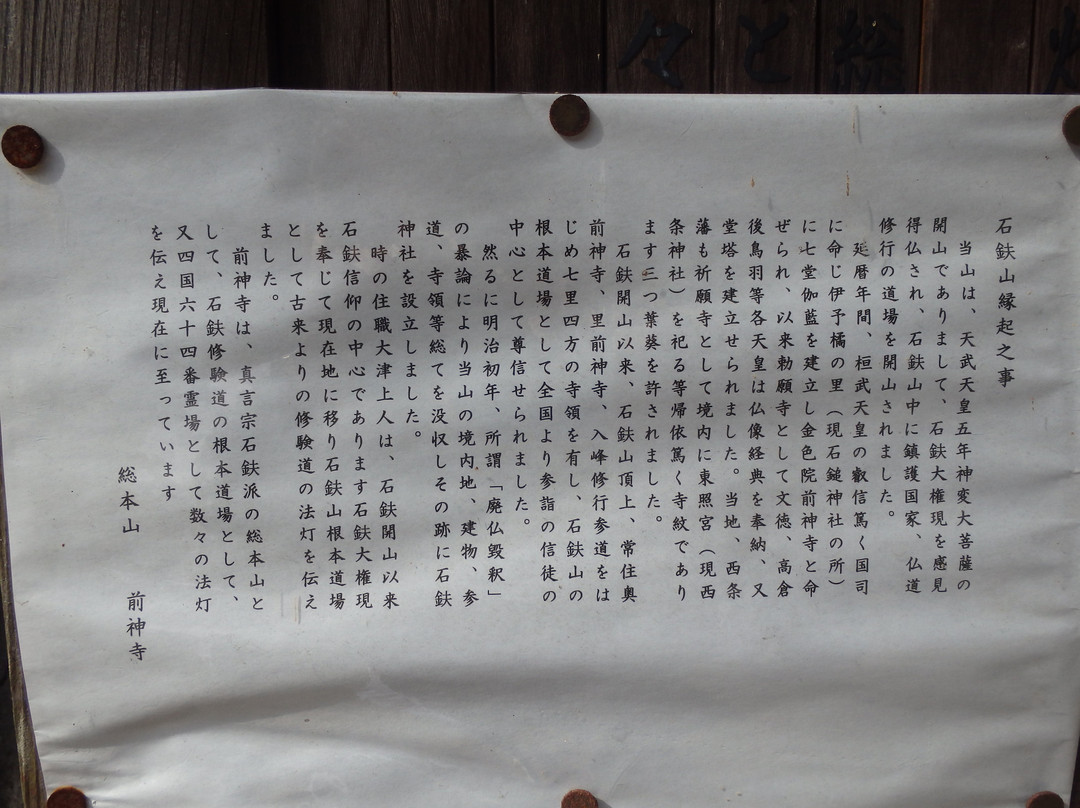 々と総
石鈇山縁起之事
当山は、天武天皇五年神変大菩薩の
開山でありまして、石鈇大権現を感見
得仏され、石鈇山中に鎮護国家、仏道
修行の道場を開山されました。
延暦年間、桓武天皇の叡信篤く国司
に命じ伊予橘の里（現石鎚神社の所）
に七堂伽藍を建立し金色院前神寺と命
ぜられ、以来勅願寺として文徳、高倉
後鳥羽等各天皇は仏像経典を奉納、又
堂塔を建立せられました。当地、西条
藩も祈願寺として境内に東照宮（現西
条神社）を祀る等帰依篤く寺紋であり
ます三つ葉葵を許されました。
石鈇開山以来、石鈇山頂上、常住奥
前神寺、里前神寺、入峰修行参道をは
じめ七里四方の寺領を有し、石鈇山の
根本道場として全国より参詣の信徒の
中心として尊信せられました。
然るに明治初年、所謂「廃仏毀釈」
の暴論により当山の境内地、建物、参
道、寺領等総てを没収しその跡に石鈇
神社を設立しました。
時の住職大津上人は、石鈇開山以来
石鈇信仰の中心であります石鈇大権現
を奉じて現在地に移り石鈇山根本道場
として古来よりの修験道の法灯を伝え
ました。
前神寺は、真言宗石鈇派の総本山と
して、石鈇修験道の根本道場として、
又四国六十四番霊場として数々の法灯
を伝え現在に至っています
総本山　前神寺